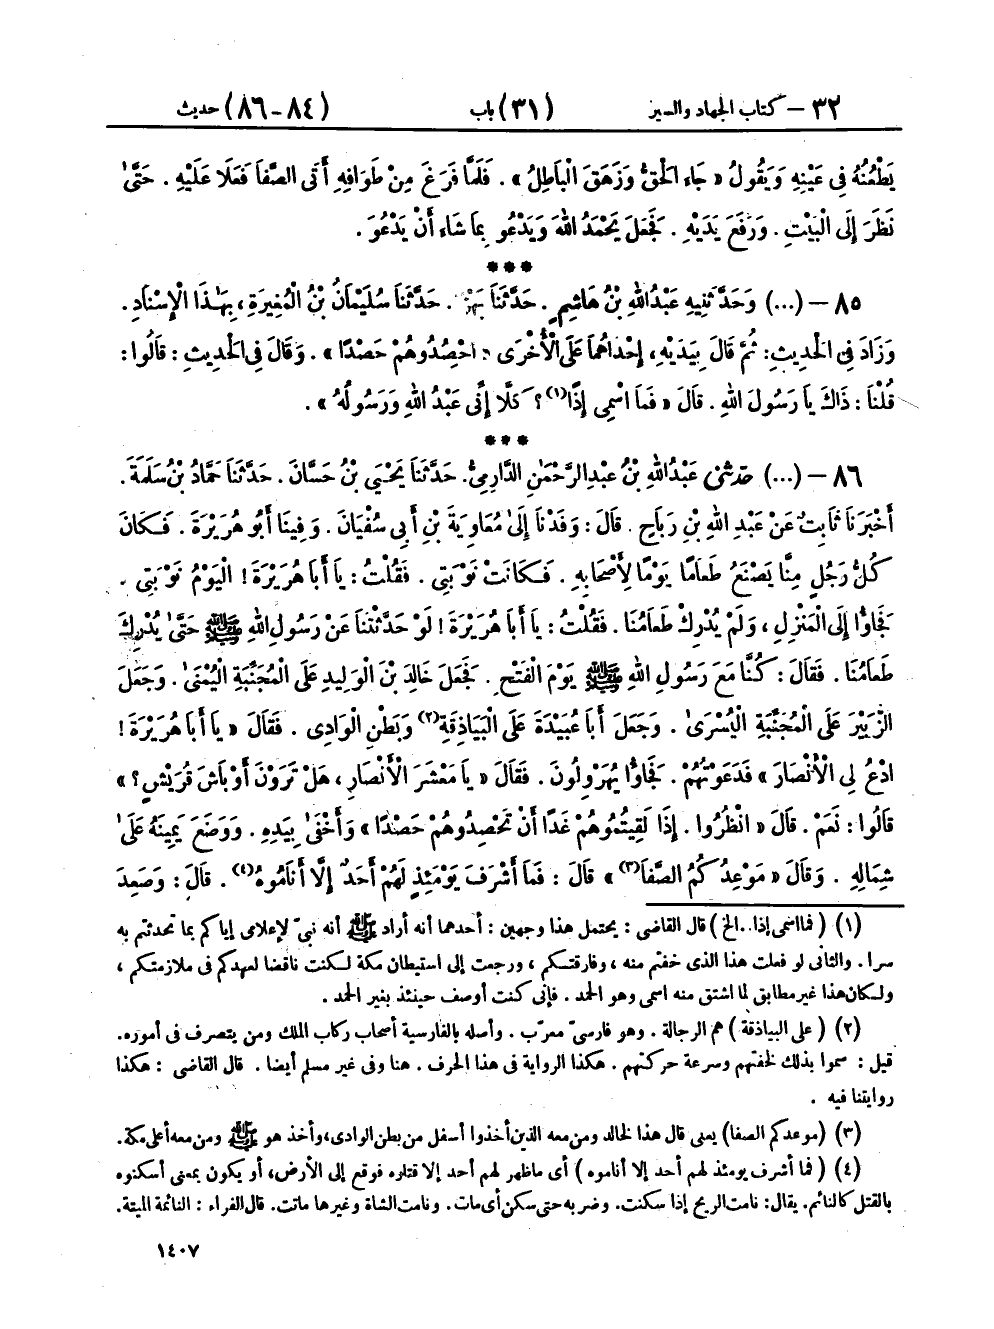 ٣٢ – كتاب الجهاد والسير (٣١) باب (٨٤-٨٦) حديث
يَطْعُنُهُ فِى عَيْنِهِ وَيَقُولُ « جَاءَ الْحَقُّ وَزَهَقَ الْبَاطِلُ » . فَلَمَّا فَرَغَ مِنْ طَوَافِهِ أَتَى الصَّفَا فَعَلَا عَلَيْهِ . حَتَّىٰ
نَظَرَ إِلَى الْبَيْتِ . وَرَفَعَ يَدَيْهِ . فَجَعَلَ يَحْمَدُ اللهَ وَيَدْعُو بِمَا شَاءَ أَنْ يَدْعُوَ .
***
٨٥ – (...) وَحَدَّثَنِيهِ عَبْدُ اللهِ بْنُ هَاشِمٍ . حَدَّثَنَا بَهْزٌ . حَدَّثَنَا سُلَيْمَانُ بْنُ الْمُغِيرَةِ ، بِهَٰذَا الْإِسْنَادِ .
وَزَادَ فِى الْحَدِيثِ : ثُمَّ قَالَ بِيَدَيْهِ ، إِحْدَاهُمَا عَلَى الْأُخْرَى « احْصُدُوهُمْ حَصْدًا » . وَقَالَ فِى الْحَدِيثِ : قَالُوا :
قُلْنَا : ذَاكَ يَا رَسُولَ اللهِ . قَالَ « فَمَا اسْمِى إِذًا(١) ؟ كَلَّا إِنِّى عَبْدُ اللهِ وَرَسُولُهُ » .
***
٨٦ – (...) حَدَّثَنِى عَبْدُ اللهِ بْنُ عَبْدِ الرَّحْمَٰنِ الدَّارِمِىُّ . حَدَّثَنَا يَحْيَى بْنُ حَسَّانَ . حَدَّثَنَا حَمَّادُ بْنُ سَلَمَةَ .
أَخْبَرَنَا ثَابِتٌ عَنْ عَبْدِ اللهِ بْنِ رَبَاحٍ . قَالَ : وَفَدْنَا إِلَىٰ مُعَاوِيَةَ بْنِ أَبِى سُفْيَانَ . وَفِينَا أَبُو هُرَيْرَةَ . فَكَانَ
كُلُّ رَجُلٍ مِنَّا يَصْنَعُ طَعَامًا يَوْمًا لِأَصْحَابِهِ . فَكَانَتْ نَوْبَتِى . فَقُلْتُ : يَا أَبَا هُرَيْرَةَ ! الْيَوْمُ نَوْبَتِى .
فَجَاؤُا إِلَى الْمَنْزِلِ ، وَلَمْ يُدْرِكْ طَعَامُنَا . فَقُلْتُ : يَا أَبَا هُرَيْرَةَ ! لَوْ حَدَّثْتَنَا عَنْ رَسُولِ اللهِ ﷺ حَتَّىٰ يُدْرِكَ
طَعَامُنَا . فَقَالَ : كُنَّا مَعَ رَسُولِ اللهِ ﷺ يَوْمَ الْفَتْحِ . فَجَعَلَ خَالِدَ بْنَ الْوَلِيدِ عَلَى الْمُجَنِّبَةِ الْيُمْنَىٰ . وَجَعَلَ
الزُّبَيْرَ عَلَى الْمُجَنِّبَةِ الْيُسْرَىٰ . وَجَعَلَ أَبَا عُبَيْدَةَ عَلَى الْبَيَاذِقَةِ(٢) وَبَطْنِ الْوَادِى . فَقَالَ « يَا أَبَا هُرَيْرَةَ !
ادْعُ لِى الْأَنْصَارَ » فَدَعَوْتُهُمْ . فَجَاؤُا يُهَرْوِلُونَ . فَقَالَ « يَا مَعْشَرَ الْأَنْصَارِ ، هَلْ تَرَوْنَ أَوْبَاشَ قُرَيْشٍ ؟ »
قَالُوا : نَعَمْ . قَالَ « انْظُرُوا . إِذَا لَقِيتُمُوهُمْ غَدًا أَنْ تَحْصِدُوهُمْ حَصْدًا » وَأَخْفَىٰ بِيَدِهِ . وَوَضَعَ يَمِينَهُ عَلَىٰ
شِمَالِهِ . وَقَالَ « مَوْعِدُكُمُ الصَّفَا(٣) » قَالَ : فَمَا أَشْرَفَ يَوْمَئِذٍ لَهُمْ أَحَدٌ إِلَّا أَنَامُوهُ(٤) . قَالَ : وَصَعِدَ
(١) ( فما اسمى إذا .. الخ ) قال القاضى : يحتمل هذا وجهين : أحدهما أنه أراد ﷺ أنه نبىّ لإعلامى إياكم بما تحدثتم به
سرا . والثانى لو فعلت هذا الذى خفتم منه ، وفارقتكم ، ورجعت إلى استيطان مكة لكنت ناقضا لعهدكم فى ملازمتكم ،
ولكان هذا غير مطابق لما اشتق منه اسمى وهو الحمد . فإنى كنت أوصف حينئذ بغير الحمد .
(٢) ( على البياذقة ) هم الرجالة . وهو فارسىّ معرّب . وأصله بالفارسية أصحاب ركاب الملك ومن يتصرف فى أموره .
قيل : سموا بذلك لخفتهم وسرعة حركتهم . هكذا الرواية فى هذا الحرف . هنا وفى غير مسلم أيضا . قال القاضى : هكذا
روايتنا فيه .
(٣) (موعدكم الصفا) يعنى قال هذا لخالد ومن معه الذين أخذوا أسفل من بطن الوادى، وأخذ هو ﷺ ومن معه أعلى مكة.
(٤) ( فما أشرف يومئذ لهم أحد إلا أناموه ) أى ماظهر لهم أحد إلا قتلوه فوقع إلى الأرض، أو يكون بمعنى أسكنوه
بالقتل كالنائم. يقال: نامت الريح إذا سكنت. وضربه حتى سكن أى مات . ونامت الشاة وغيرها ماتت. قال الفراء : النائمة الميتة.
١٤٠٧